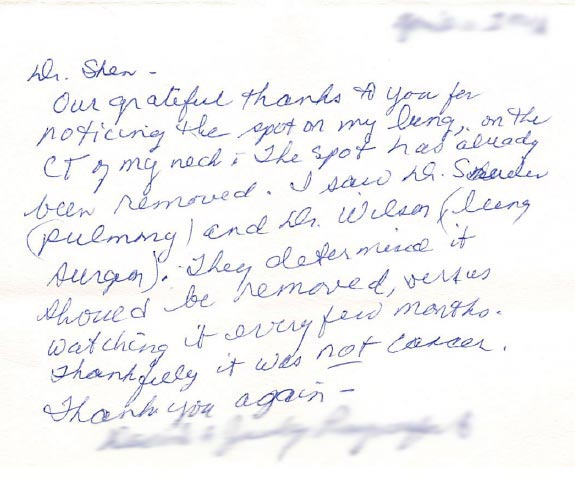 Dr. Shen -
Our grateful thanks to you for
noticing the spot on my lung, on the
CT of my neck! The spot has already
been removed. I saw Dr.
(pulmonary) and Dr. Wilson (lung
surgeon). They determined it
should be removed, versus
watching it every few months.
Thankfully it was not cancer.
Thank you again -